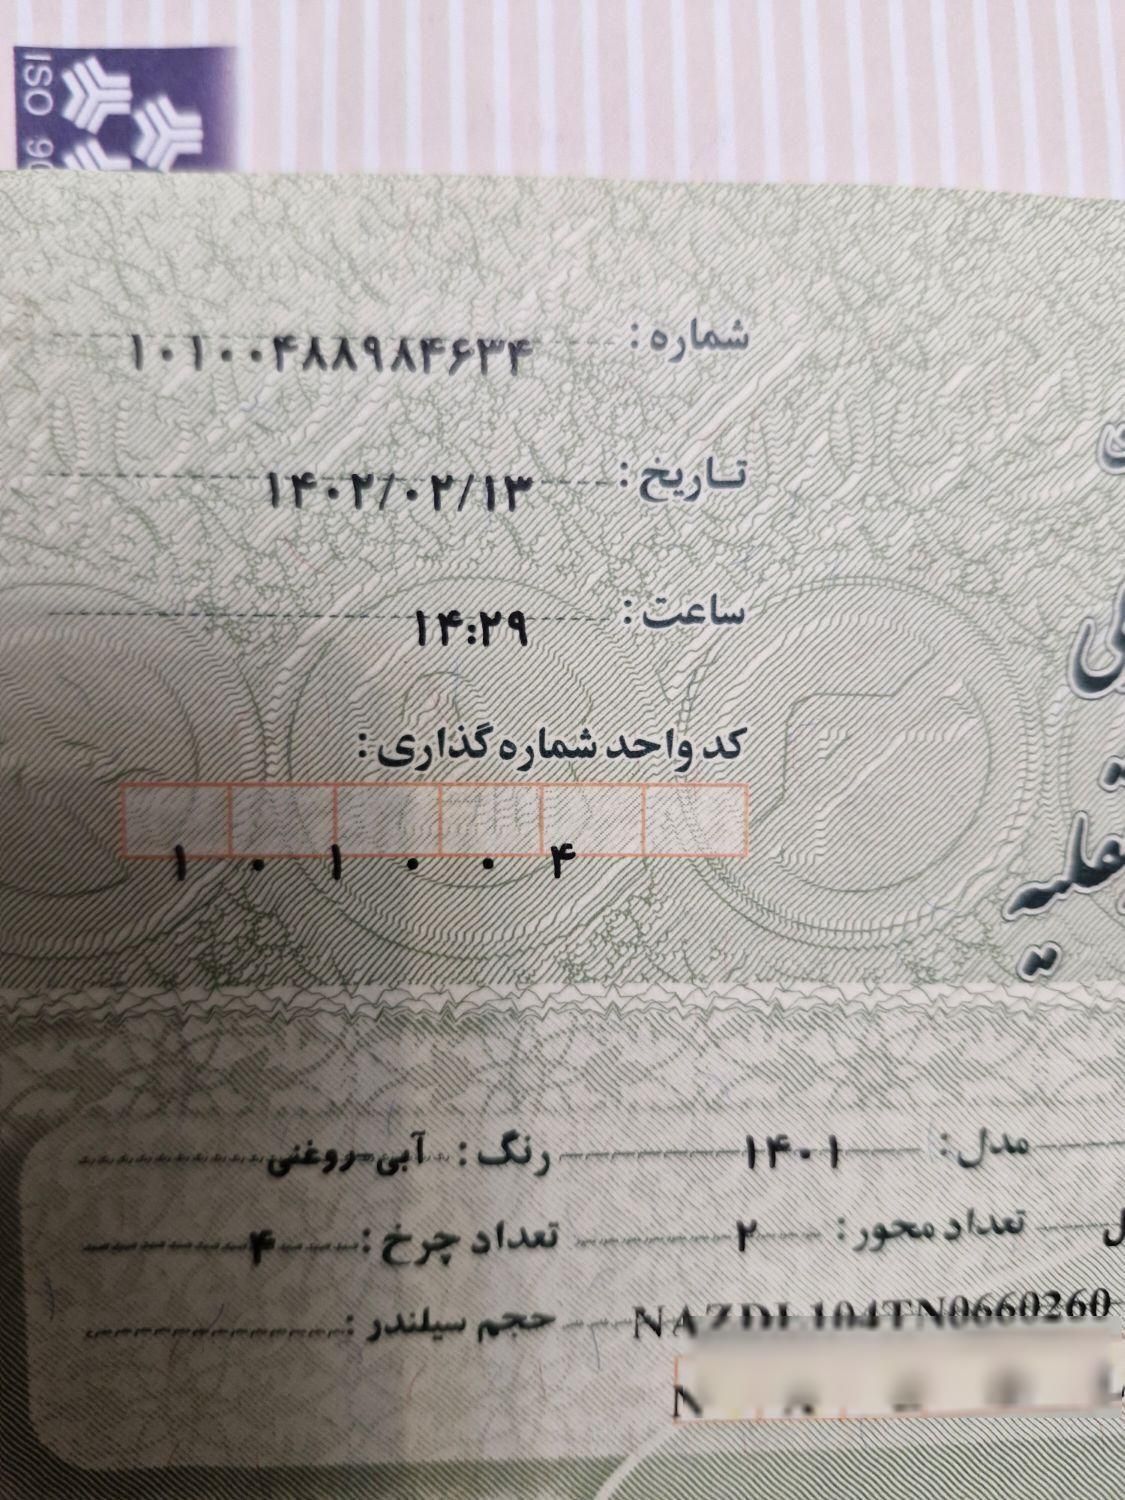 ISO 90
شماره: ۱۰۱۰۰۴۸۸۹۸۴۶۳۴
تاریخ: ۱۴۰۲/۰۲/۱۳
ساعت: ۱۴:۲۹
کد واحد شماره گذاری:
۱ ۰ ۱ ۰ ۰ ۴
مدل: ۱۴۰۱ رنگ: آبی-روغنی
تعداد محور: ۲ تعداد چرخ: ۴
NAZDL104TN0660260 حجم سیلندر:
N